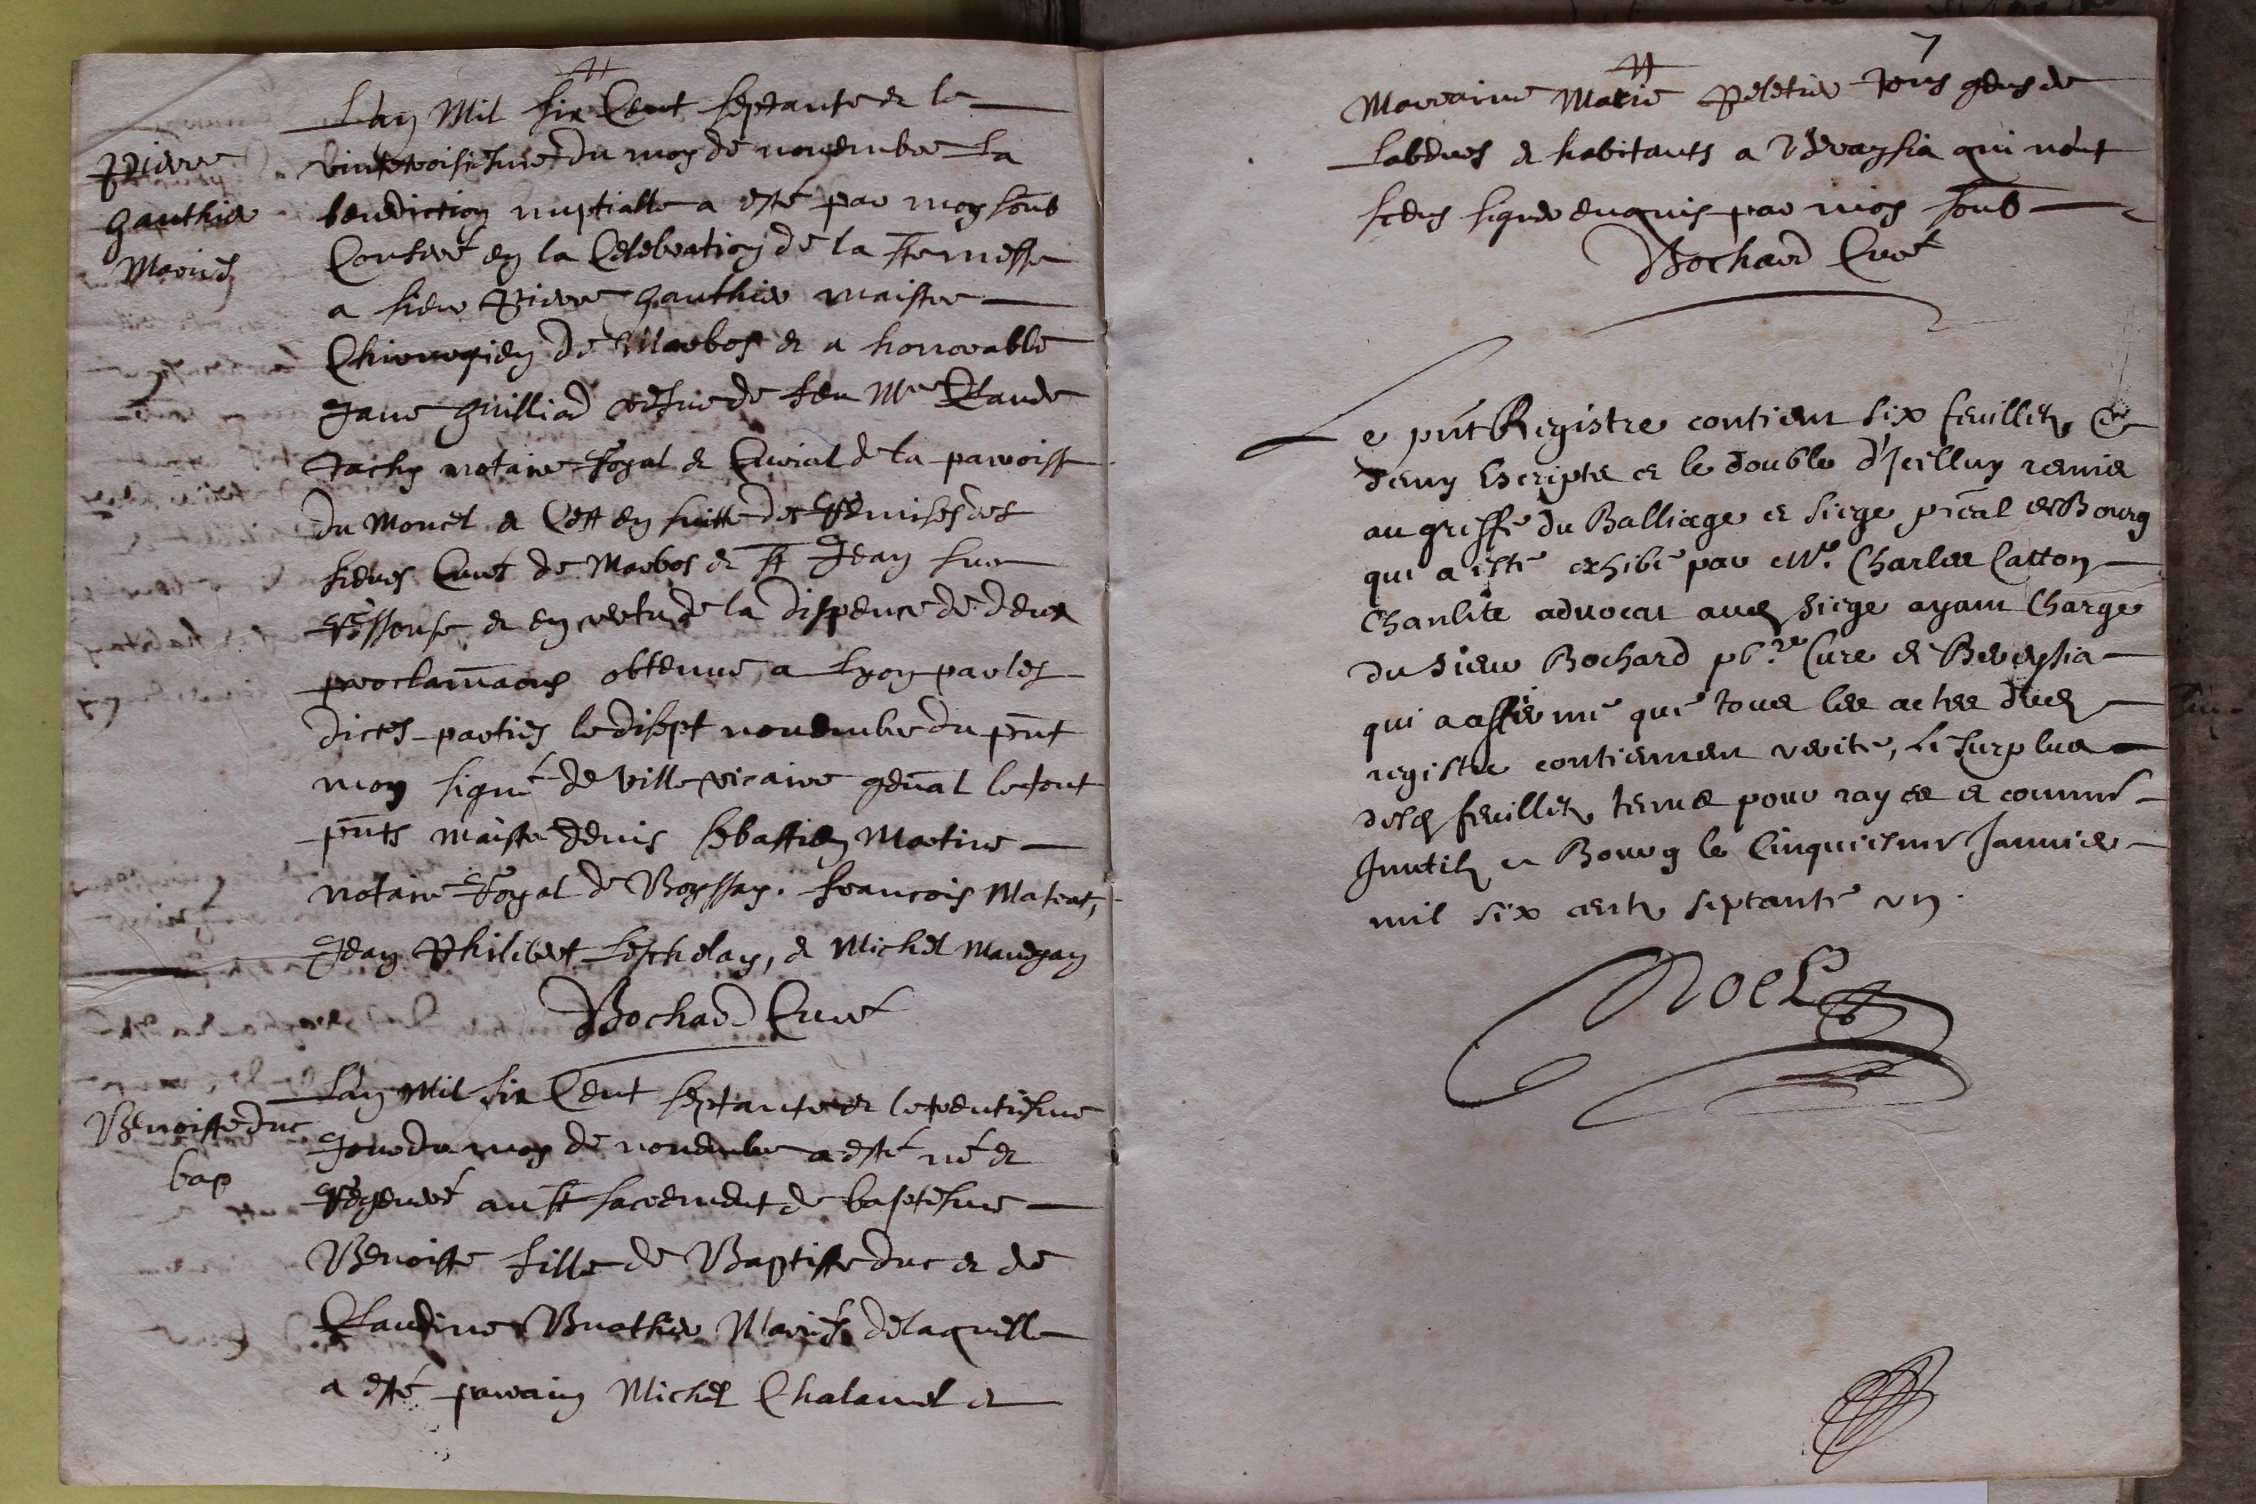 Pierre
gauthier
Mariés
Lan Mil six Cent septante & le
vintetroisiesme du moy de novembre La
benediction nuptialle a esté par moy soub
Conferé en la Celebration de la ste messe
a sieur Pierre gauthier maistre
Chirurgien de Marbos & a honnorable
Jane guilliod vefue de feu Mre Claude
Tachy notaire Royal & Curial de la parroisse
du Moncel & Cest en suitte des Remises des
sieurs Curés de Marbos & st Jean sur
Ressouse & en vertu de la dispence de deux
proclamaons obtenue a Lyon par les
dictes parties le disept novembre du pnt
moy signé de ville vicaire genal le tout
pnts maistre denis sebastien Martine
notaire Royal de Boyssay. francois Mateat,
Jean Philibert Leschelay, & Michel Mangay
Bochard Curé
Benoiste duc
bap
Lan Mil six Cent septante & le trentiesme
Jour du moy de novembre a esté né &
Regeneré au st sacrement de baptesme
Benoiste fille de Baptiste duc & de
Claudine Buathier Mariés de laquelle
a esté parrain Michel Chalamel &
7
Marraine Marie Peletier tous gens de
Labeurs & habitants a Bereysia qui nont
sceus signer enquis par moy soub
Bochard Curé
Le pnt Registre contient six feuilletz &
demy Escripts et le double d'Icelluy remis
au greffe du Balliage et siege pnal de Bourg
qui a esté exhibé par Mre. Charles Catton
Chanlite advocat aud siege ayant Charge
du sieur Bochard pbre Curé de Bereysia
qui a affirmé que tous les actes dud
registre contiennent verité, le surplus
desd feuilletz tenus pour rayes et comme
Inutilz a Bourg le Cinquiesme Janvier
mil six centz septante un.
Noel